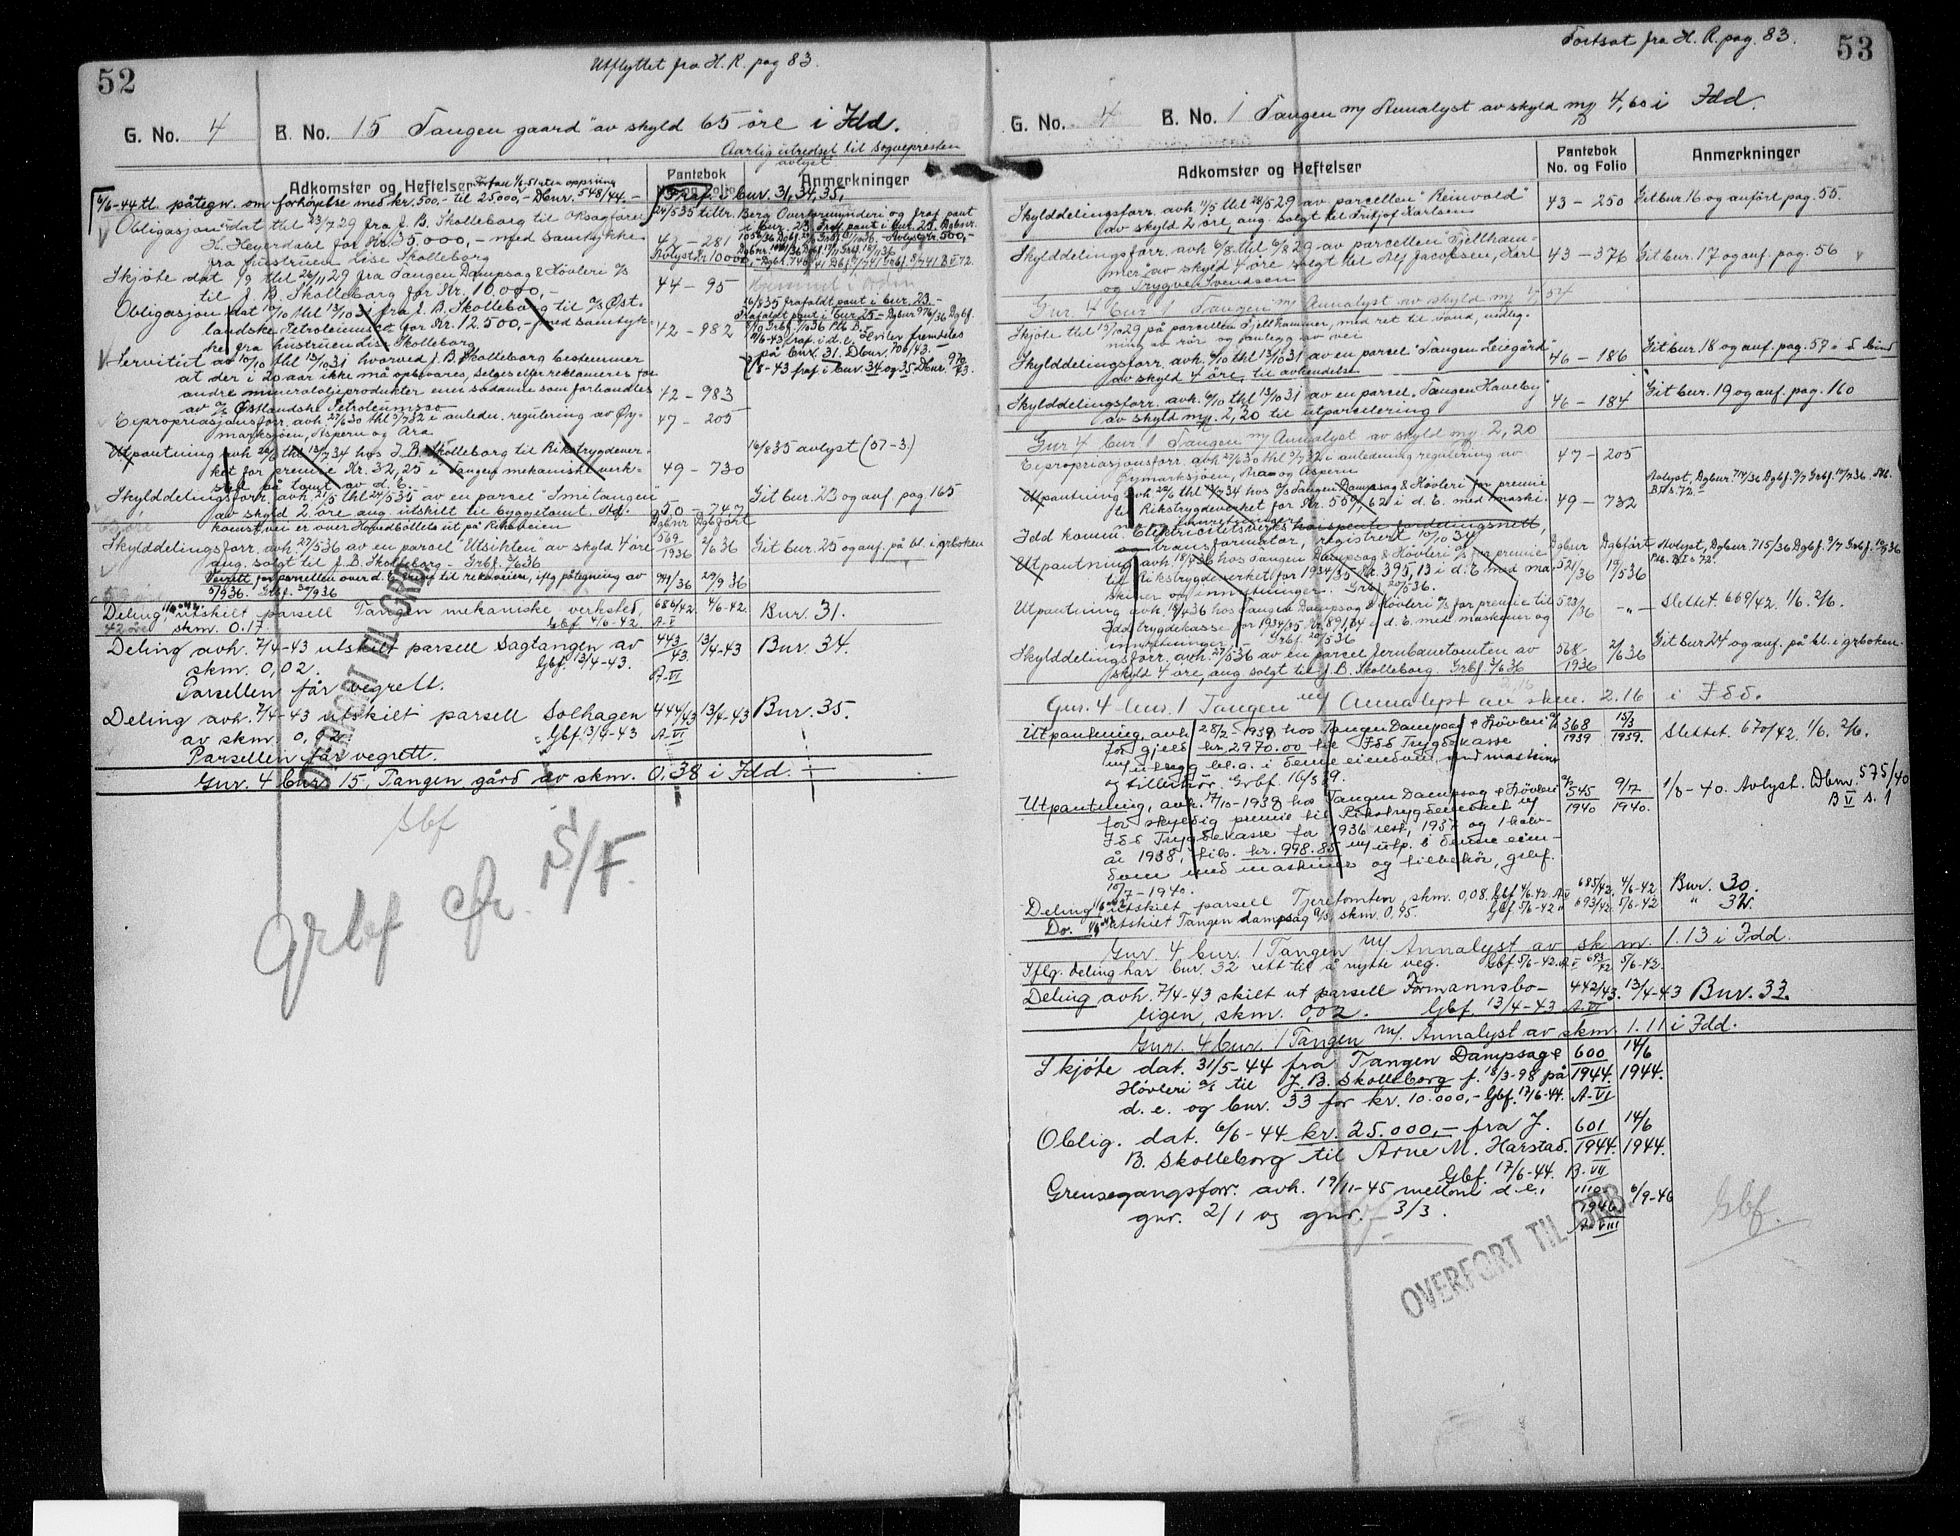 52
Utflyttet fra H. R. pag 83.
G. No. 4 B. No. 15 "Tangen gaard" av skyld 65 öre i Idd.
Aarlig utredsel til Sognepresten
avlyst
Adkomster og Heftelser
Pantebok
No. og Folio
Anmerkninger
6/6-44 tl. påtegn. om forhöielse med kr. 500,- til 25000,- Dbnr. 548/44.-
Fraf. i bnr. 31, 34, 35,
Obligasjon dat thl 23/7 29 fra J. B. Skolleborg til Oksagförer
H. Heyerdahl for Kr. 35,000,- med samtykke
fra hustruen Lise Skolleborg
42 - 281
Skjöte dat 1/9 thl 26/11 29 fra Tangen Dampsag & Hövleri a/s
til J. B. Skolleborg for Kr. 10,000,-
44 - 95
Obligasjon dat 10/10 thl 13/10 31 fra J. B. Skolleborg til a/s Öst-
landske Petroleumsco for Kr. 12.500,- med samtyk-
ke fra hustruen Lise Skolleborg
42 - 982
26/8 35 frafaldt pant i bnr. 23.-
Frafaldt pant i bnr 25 - Dgbnr 976/36
på bnr. 31. Dbnr. 706/43.-
7/8-43 fraf i bnr. 34 og 35 Dbnr. 970/43.
Servitut av 10/10 thl 13/10 31 hvorved J. B. Skolleborg bestemmer
at der i 20 aar ikke må opbevares, selges eller reklameres for
andre mineraloljeprodukter enn sådanne som forhandles
av a/s Östlandske Petroleumsco
42 - 983
Expropriasjonsforr. avh. 27/6 30 thl 2/7 32 i anledn. regulering av Öy-
marksjöen, Aspern og Ara
47 - 205
Utpantning avh 26/6 thl 12/7 34 hos J. B. Skolleborg til Rikstrygdever-
ket for premie Kr. 32,25 i Tangen mekaniske verk-
sted på tomt av d. E. -
49 - 730
16/8 35 avlyst (57-3.)
Skylddelingsforr. avh. 21/5 thl 24/5 35 av en parsel "Smitangen"
av skyld 2 öre ang. utskilt til byggetomt. Ad-
komstvei er over Hovedbölets ut på Riksveien
50 - 747
Git bnr. 23 og anf. pag. 165
Dgbnr Dgbfört
Skylddelingsforr. avh. 27/5 36 av en parsel "Utsikten" av skyld 4 öre
ang. solgt til J. B. Skolleborg - Grbf. 3/6 36
569/1936 2/6 36
Git bnr. 25 og anf. på bl. i grboken
Veirett for parsellen over d. E. frem til riksveien, iflg påtegning av
5/9 36. Grbf. 30/9 36
991/36 29/9 36
Deling 1/6-42, utskilt parsell Tangen mekaniske verksted,
skm. 0.17 Gbf 4/6-42
42 öre
686/42 A-V 4/6-42.
Bnr. 31.
Deling avh. 7/4-43 utskilt parsell Sagtangen av
skm. 0,02. Gbf. 13/4-43.
Parsellen får vegrett.
443/43. A-VI 13/4-43
Bnr. 34.
Deling avh. 7/4-43 utskilt parsell Solhagen
av skm. 0,02 Gbf. 13/4-43
Parsellen får vegrett.
444/43 A-VI 13/4-43
Bnr. 35.
Gnr. 4 bnr. 15, Tangen gård av skm. 0,38 i Idd.
OVERFØRT TIL GRB.
Gbf
Grbf cfr. S/F.
53
Fortsat fra H. R. pag. 83.
G. No. 4 B. No. 1 Tangen m/ Annalyst av skyld m/ 4,60 i Idd.
Adkomster og Heftelser
Pantebok
No. og Folio
Anmerkninger
Skylddelingsforr. avh 11/5 thl 28/5 29 av parcellen "Reinvold"
av skyld 2 öre, ang. solgt til Fritjof Karlsen
43 - 250
Git bnr. 16 og anfört pag. 55.
Skylddelingsforr. avh 6/8 thl 6/8 29 av parcellen "Fjellham-
mer" av skyld 4 öre solgt til Alf Jacobsen, Karl
og Trygve Svendsen
43 - 376
Git bnr. 17 og anf. pag. 56
Gnr. 4 bnr 1 Tangen m/ Annalyst av skyld m/ 4,54
Skjöte thl 19/10 29 på parcellen Fjellhammer, med ret til vand, nedleg-
ning av rör og anlegg av vei
Skylddelingsforr. avh. 9/10 thl 13/10 31 av en parcel "Tangen Leiegård"
av skyld 4 öre, til avhendelse
46 - 186
Git bnr. 18 og anf. pag. 57 - d. bind
Skylddelingsforr. avh. 9/10 thl 13/10 31 av en parcel, "Tangen Haveby"
av skyld m/ 2,20 til utparcelering
46 - 184
Git bnr. 19 og anf. pag. 160
Gnr 4 bnr 1 Tangen m/ Annalyst av skyld m/ 2,20
Expropriasjonsforr. avh 27/6 30 thl 2/7 32 i anledning regulering av
Öymarksjöen, Ara og Aspern
47 - 205
Utpantning avh 26/6 thl 12/7 34 hos a/s Tangen Dampsag & Hövleri for premie
til Rikstrygdeverket for Kr. 509,62 i d. E. med maski-
ner og innretninger
49 - 732
Avlyst, Dgbnr. 714/36 Dgbf. 9/7 Grbf. 10/7 36. Pb.
B V s. 72 -
Idd komm. Elektricitetsverks
transformator, registrert 10/10 34
Utpantning avh. 16/4 36 hos Tangen Dampsag & Hövleri a/s for premie
til Rikstrygdeverket for 1934/35 - Kr. 395,13 i d. E. med ma-
skiner og innretninger. Grbf. 20/5 36.
Dgbnr 521/36 Dgbfört 19/5 36
Avlyst, Dgbnr. 715/36 Dgbf. 9/7 Grbf. 10/7 36
Pb. B V s 72.
Utpantning avh. 16/4 36 hos Tangen Dampsag & Hövleri a/s for premie til
Idd trygdekasse for 1934/35 Kr. 891,74 i d. E. med maskiner og
innretninger Grbf. 20/5 36
523/36 - " -
Slettet. 669/42. 1/6. 2/6.
Skylddelingsforr. avh. 27/5 36 av en parcel Jernbanetomten av
skyld 4 öre, ang solgt til J. B. Skolleborg. Grbf. 3/6 36
568/1936 2/6 36
Git bnr 24 og anf. på bl. i grboken
Gnr. 4 bnr. 1 Tangen m/ Annalyst av skm. 2.16 i Idd.
Utpantning, avh. 28/2 - 1939 hos Tangen Dampsag & Hövleri a/s
for gjeld kr. 2970.00 til Idd Trygdekasse
m/ utlegg bl. a. i denne eiendom, med maskiner
og tilbehör. Grbf. 16/3 39.
368/1939 15/3 1939.
Slettet. 670/42. 1/6. 2/6.
Utpantning, avh. 17/10 - 1938 hos Tangen Dampsag & Hövleri a/s
for skyldig premie til Rikstrygdeverket m/
Idd Trygdekasse for 1936 rest, 1937 og 1 halv-
år 1938, tils. kr. 998.85 m/ utp. i denne eien-
dom med maskiner og tilbehör, grbf.
10/7 - 1940.
545/1940 9/7 1940.
1/8 - 40. Avlyst. Dbnr. 575/40
B V s. 1
Deling 1/6-42, utskilt parsell Tjeretomten, skm. 0,08. Gbf 4/6-42. A V 685/42. 4/6-42 Bnr. 30.
Do. 1/6-42 utskilt Tangen dampsag a/s, skm. 0,95. Gbf 5/6-42 " 693/42. 5/6-42 " 32.
Gnr. 4 bnr. 1 Tangen m/ Annalyst av skm. 1.13 i Idd.
Iflg. deling har bnr. 32 rett til å nytte veg. Gbf 5/6-42. A V 693/42 5/6-42.
Deling avh. 7/4-43 skilt ut parsell Formannsbo-
ligen, skm. 0,02. Gbf. 13/4-43
442/43. A-VI 13/4-43 Bnr. 33.
Gnr. 4 bnr. 1 Tangen m/ Annalyst av skm. 1.11 i Idd.
Skjöte dat. 31/5-44 fra Tangen Dampsag &
Hövleri a/s til J. B. Skolleborg f. 18/3-98 på
d. e. og bnr. 33 for kr. 10.000,- Gbf. 17/6-44.
600/1944. A-VI 14/6 1944.
Oblig. dat. 6/6-44 kr. 25.000,- fra J.
B. Skolleborg til Arne M. Harstad.
Gbf. 17/6-44.
601/1944. B-VII 14/6 1944.
Grensegangsforr. avh. 19/11-45 mellom d. e.,
gnr. 2/1 og gnr. 3/3.
1110/1946 A-VIII 6/9-46
OVERFØRT TIL GRB.
Gbf.